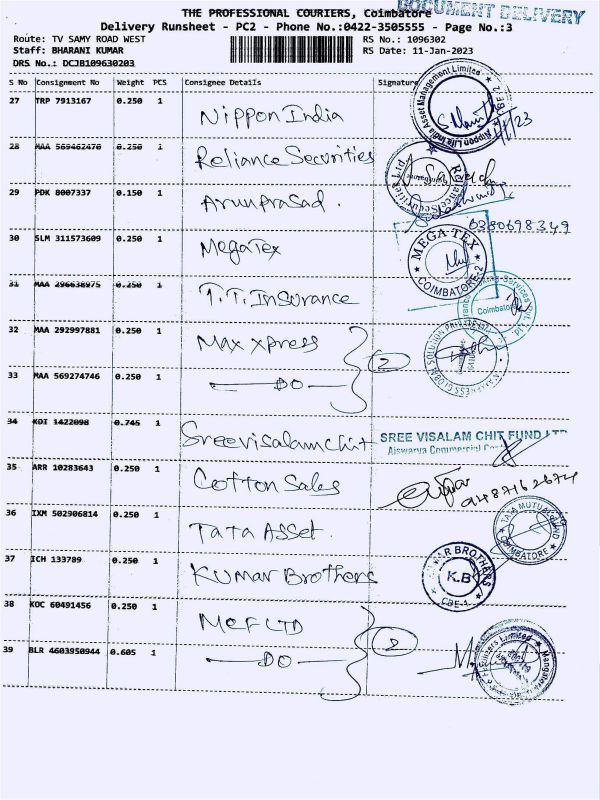 THE PROFESSIONAL COURIERS, Coimbatore
DOCUMENT DELIVERY
Delivery Runsheet - PC2 - Phone No.:0422-3505555 - Page No.:3
Route: TV SAMY ROAD WEST RS No.: 1096302
Staff: BHARANI KUMAR RS Date: 11-Jan-2023
DRS No.: DCJB109630203
S No Consignment No Weight PCS Consignee Details Signature
27 TRP 7913167 0.250 1 Nippon India
28 MAA 569462470 0.250 1 Reliance Securities
29 PDK 8007337 0.150 1 Arunprasad.
0380698349
30 SLM 311573609 0.250 1 MegaTex
MEGA-TEX COIMBATORE-2
31 MAA 296638975 0.250 1 T.T. Insurance
Coimbatore
32 MAA 292997881 0.250 1 Max xpress
2
33 MAA 569274746 0.250 1 DO
34 KDI 1422098 0.745 1 Sreevisalamchit
SREE VISALAM CHIT FUND LTD
Aiswarya Commercial
35 ARR 10283643 0.250 1 Cotton Sales
36 IXM 502906814 0.250 1 Tata Asset.
TATA MUTUAL FUND COIMBATORE
37 ICH 133789 0.250 1 Kumar Brothers
K.B
BROTHERS CBE-1
38 KOC 60491456 0.250 1 MCF LTD
2
39 BLR 4603950944 0.605 1 DO